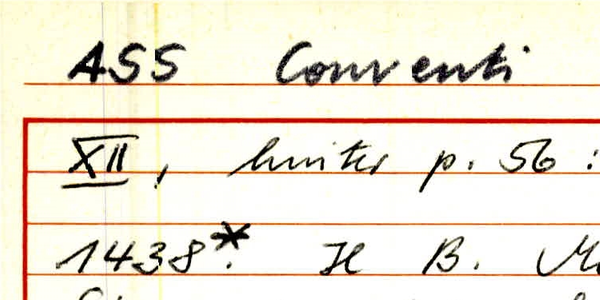 ASS Conventi
XII, hinter p. 56:
1438*. Il B.